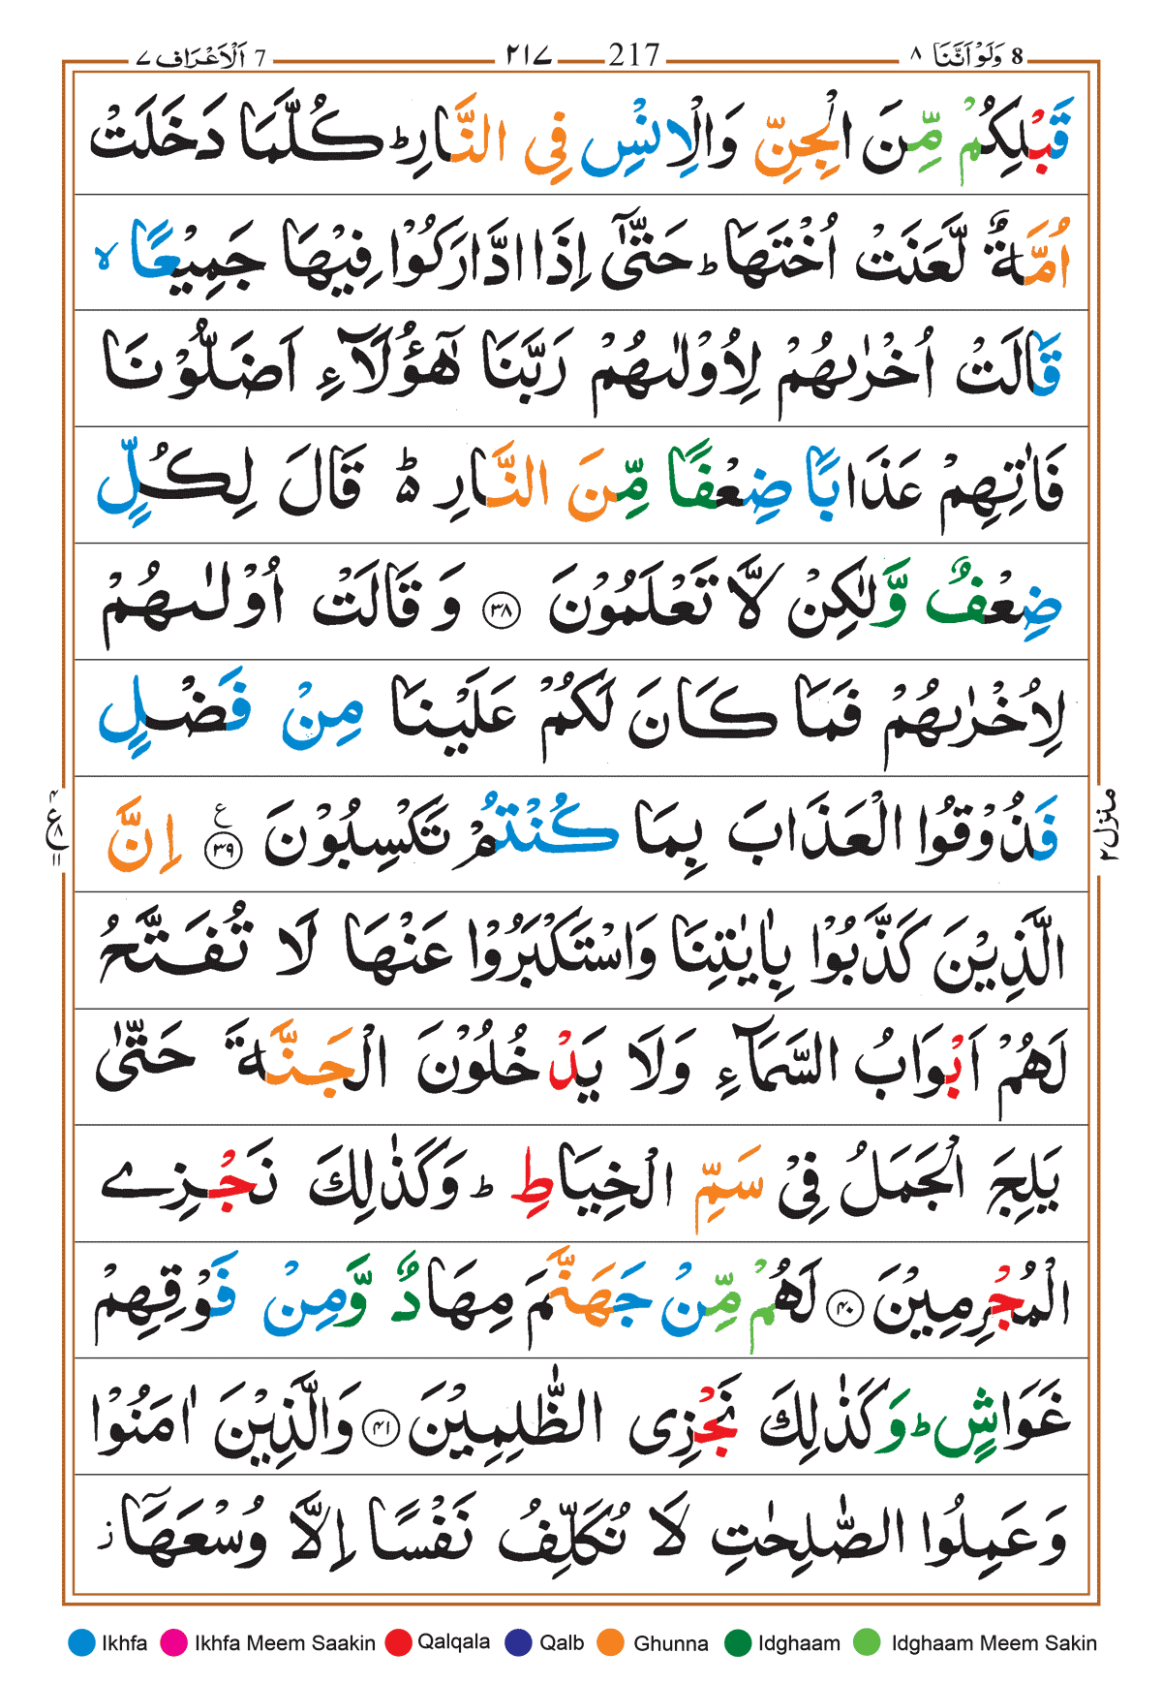 7 اَلْاَعْرَاف ٧
٢١٧ 217
8 وَلَوْ اَنَّنَا ٨
قَبْلِكُمْ مِّنَ الْجِنِّ وَالْاِنْسِ فِى النَّارِ ؕ كُلَّمَا دَخَلَتْ
اُمَّةٌ لَّعَنَتْ اُخْتَهَا ؕ حَتّٰٓى اِذَا ادَّارَكُوْا فِيْهَا جَمِيْعًا ۙ
قَالَتْ اُخْرٰىهُمْ لِاُوْلٰىهُمْ رَبَّنَا هٰٓؤُلَآءِ اَضَلُّوْنَا
فَاٰتِهِمْ عَذَابًا ضِعْفًا مِّنَ النَّارِ ؕ۬ قَالَ لِكُلٍّ
ضِعْفٌ وَّلٰكِنْ لَّا تَعْلَمُوْنَ ﴿۳۸﴾ وَ قَالَتْ اُوْلٰىهُمْ
لِاُخْرٰىهُمْ فَمَا كَانَ لَكُمْ عَلَيْنَا مِنْ فَضْلٍ
فَذُوْقُوا الْعَذَابَ بِمَا كُنْتُمْ تَكْسِبُوْنَ ﴿۳۹﴾ ع اِنَّ
الَّذِيْنَ كَذَّبُوْا بِاٰيٰتِنَا وَاسْتَكْبَرُوْا عَنْهَا لَا تُفَتَّحُ
لَهُمْ اَبْوَابُ السَّمَآءِ وَلَا يَدْخُلُوْنَ الْجَنَّةَ حَتّٰى
يَلِجَ الْجَمَلُ فِىْ سَمِّ الْخِيَاطِ ؕ وَكَذٰلِكَ نَجْزِے
الْمُجْرِمِيْنَ ﴿۴۰﴾ لَهُمْ مِّنْ جَهَنَّمَ مِهَادٌ وَّمِنْ فَوْقِهِمْ
غَوَاشٍ ؕ وَكَذٰلِكَ نَجْزِى الظّٰلِمِيْنَ ﴿۴۱﴾ وَالَّذِيْنَ اٰمَنُوْا
وَعَمِلُوا الصّٰلِحٰتِ لَا نُكَلِّفُ نَفْسًا اِلَّا وُسْعَهَاۤ ز
منزل ٢
Ikhfa Ikhfa Meem Saakin Qalqala Qalb Ghunna Idghaam Idghaam Meem Sakin